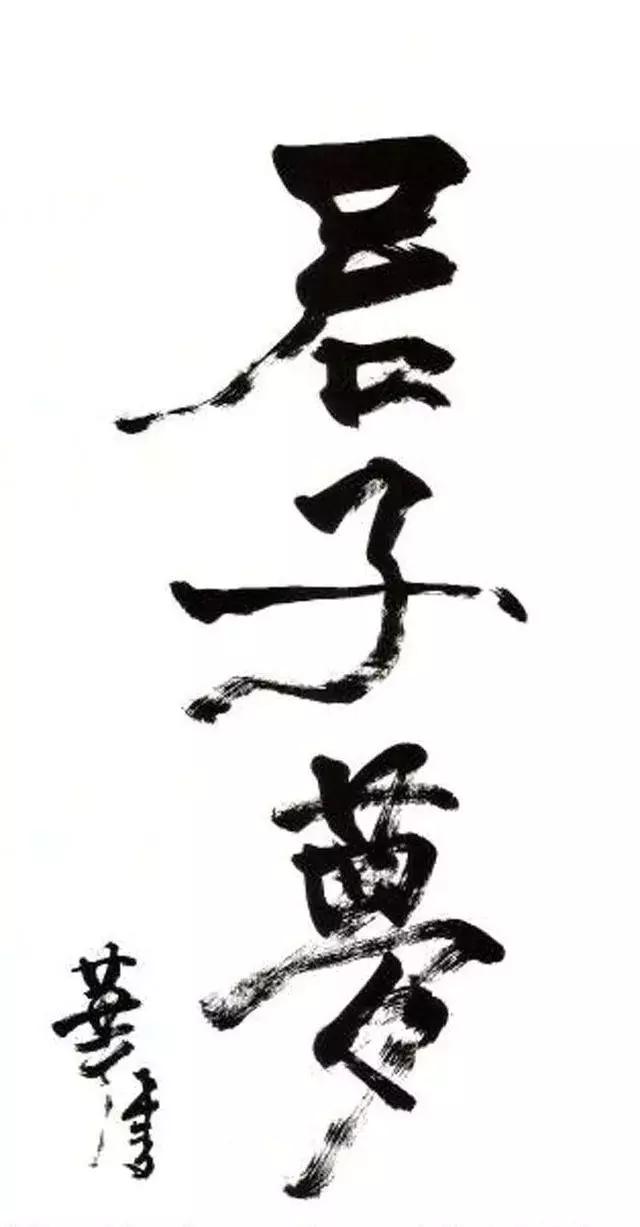 君子夢
華